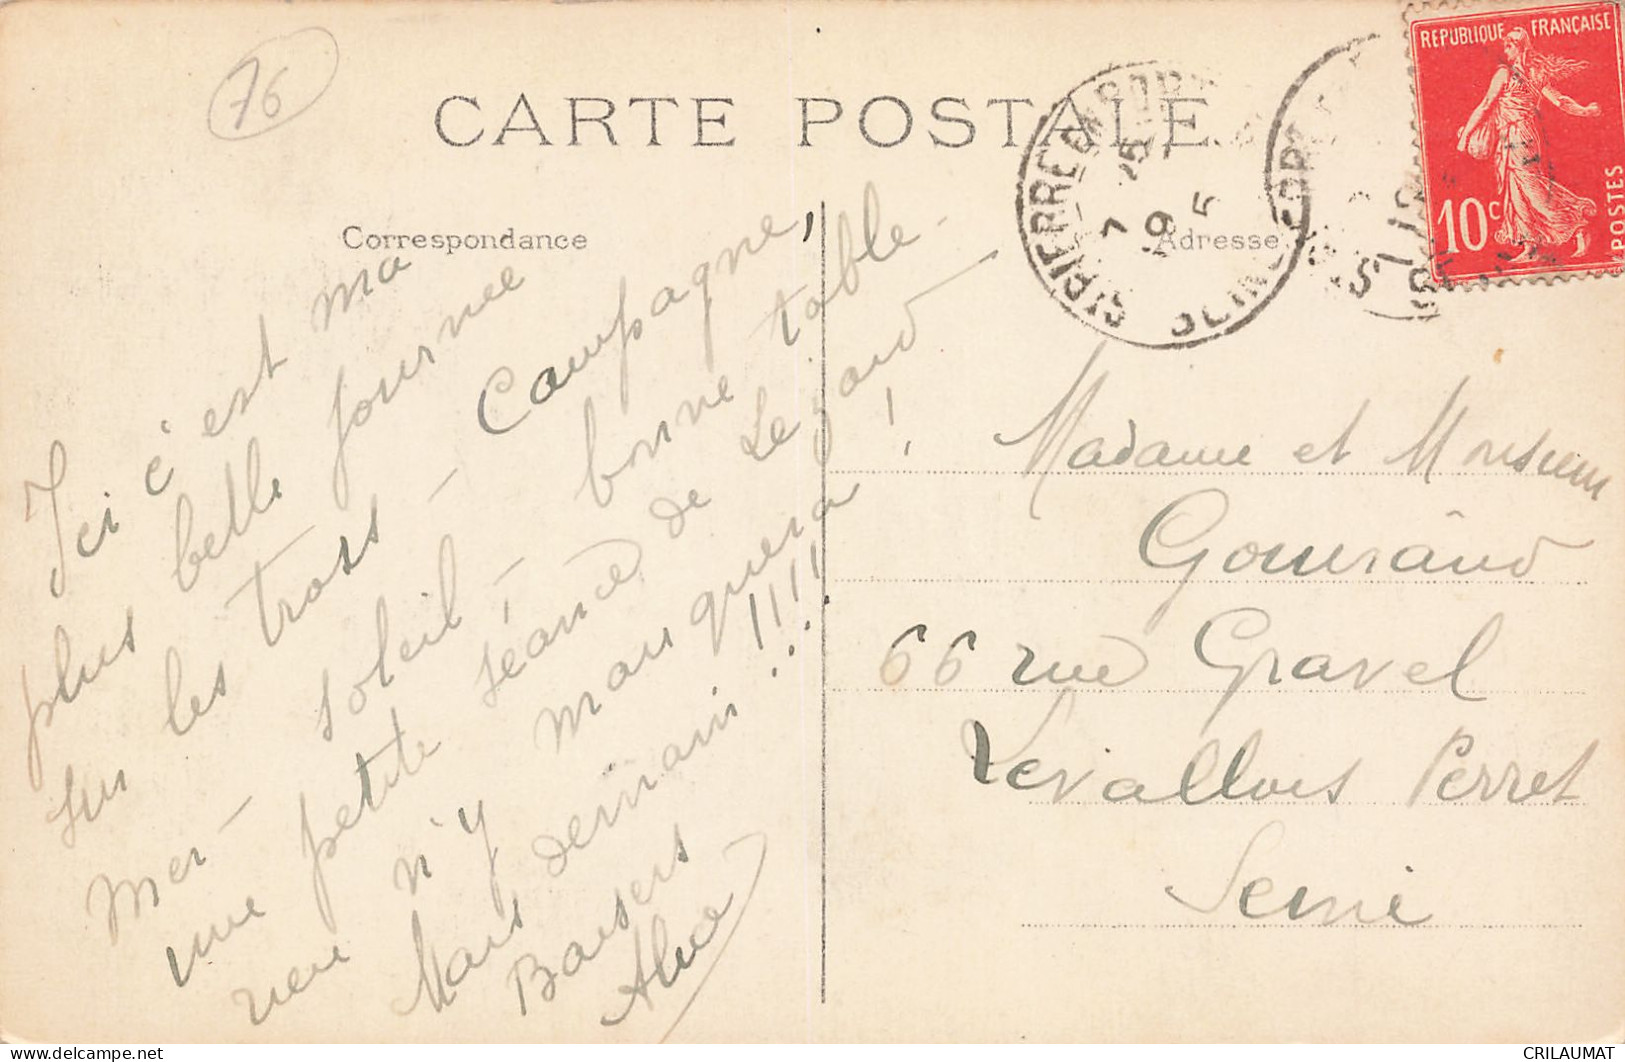 76
CARTE POSTALE
REPUBLIQUE FRANÇAISE
10c
POSTES
ST PIERRE EN PORT
7 25
9 5
SEINE
Correspondance
Adresse
Ici c'est ma
plus belle journee
sur les trois - Campagne,
mer - soleil - bonne table -
une petite séance de Lezard
rien n'y manquera !
Mais demain !!!!
Baisers
Madame et Monsieur
Gouraud
66 rue Gravel
Levallois Perret
Seine
delcampe.net
CRILAUMAT